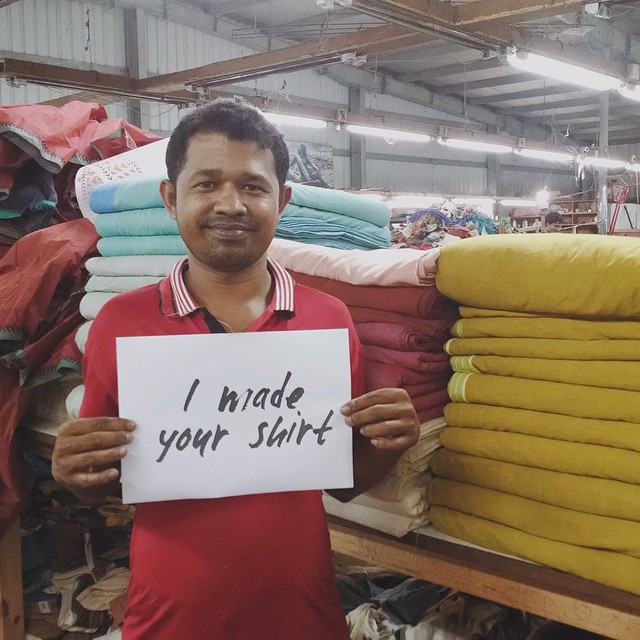 I made
your shirt